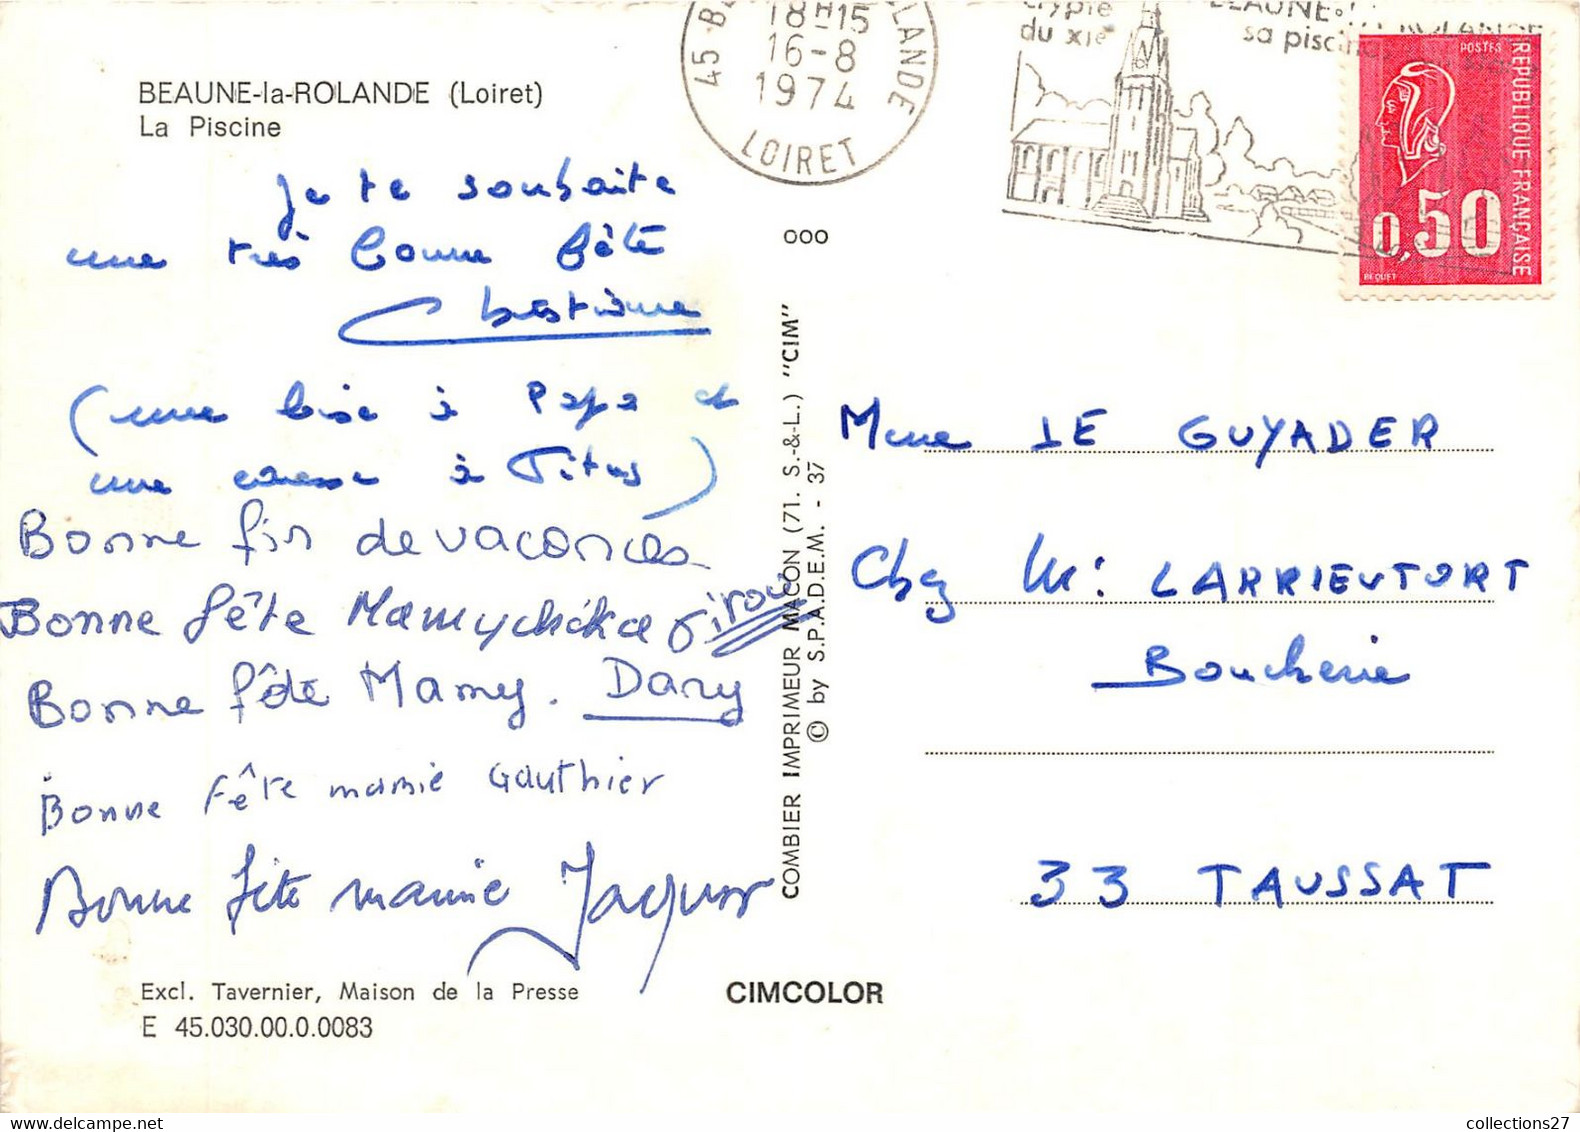 BEAUNE-la-ROLANDE (Loiret)
La Piscine
Je te souhaite
une très bonne fête
Christiane
(une bise à Papa et
une caresse à Titus)
Bonne fin de vacances
Bonne fête Mamychika
Bonne fête Mamy. Dany
Bonne fête mamie Gauthier
Bonne fête mamie Jacques
Excl. Tavernier, Maison de la Presse
E 45.030.00.0.0083
CIMCOLOR
COMBIER IMPRIMEUR MACON (71. S.-&-L.) "CIM"
© by S.P.A.D.E.M. - 37
000
18H15
16-8
1974
LOIRET
crypte
du XIe
sa piscine
POSTES
REPUBLIQUE FRANÇAISE
0,50
BEQUET
Mme LE GUYADER
Chez Mr LARRIEUTORT
Boucherie
33 TAUSSAT
collections27